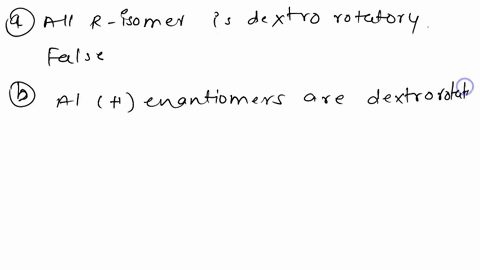 (a) All R-isomer is dextro rotatory.
False
(b) Al (+) enantiomers are dextrorotat